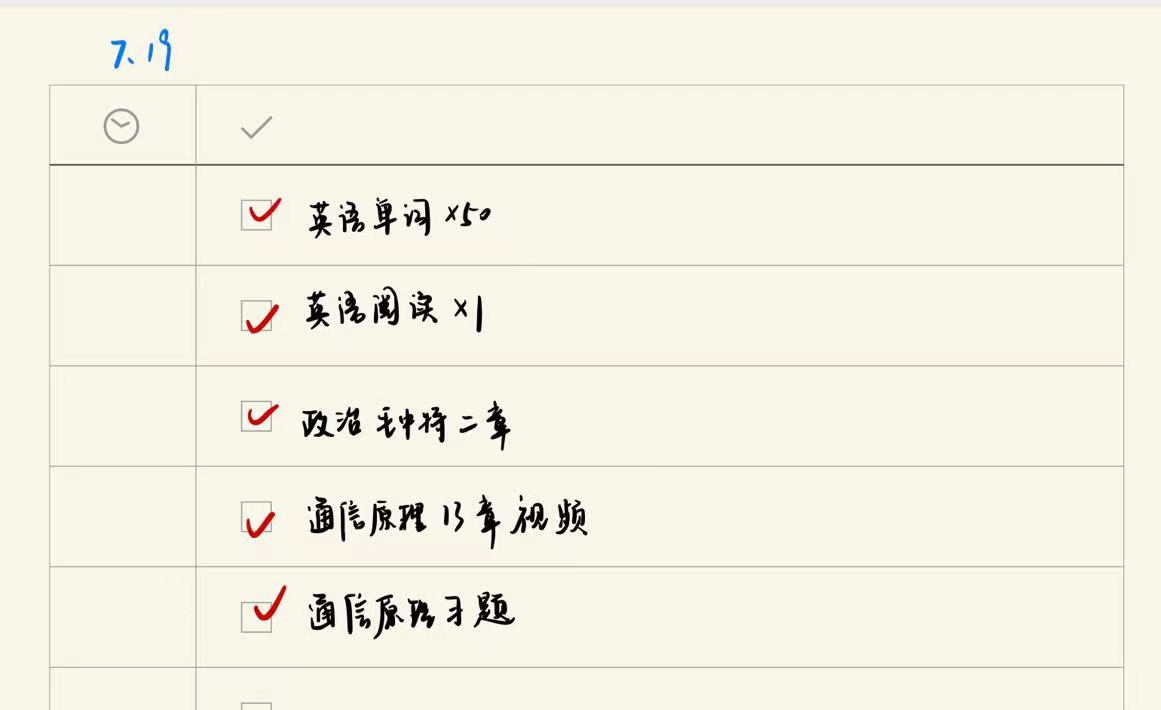 7.19
英语单词 ×50
英语阅读 ×1
政治 毛中特二章
通信原理 13章 视频
通信原理习题